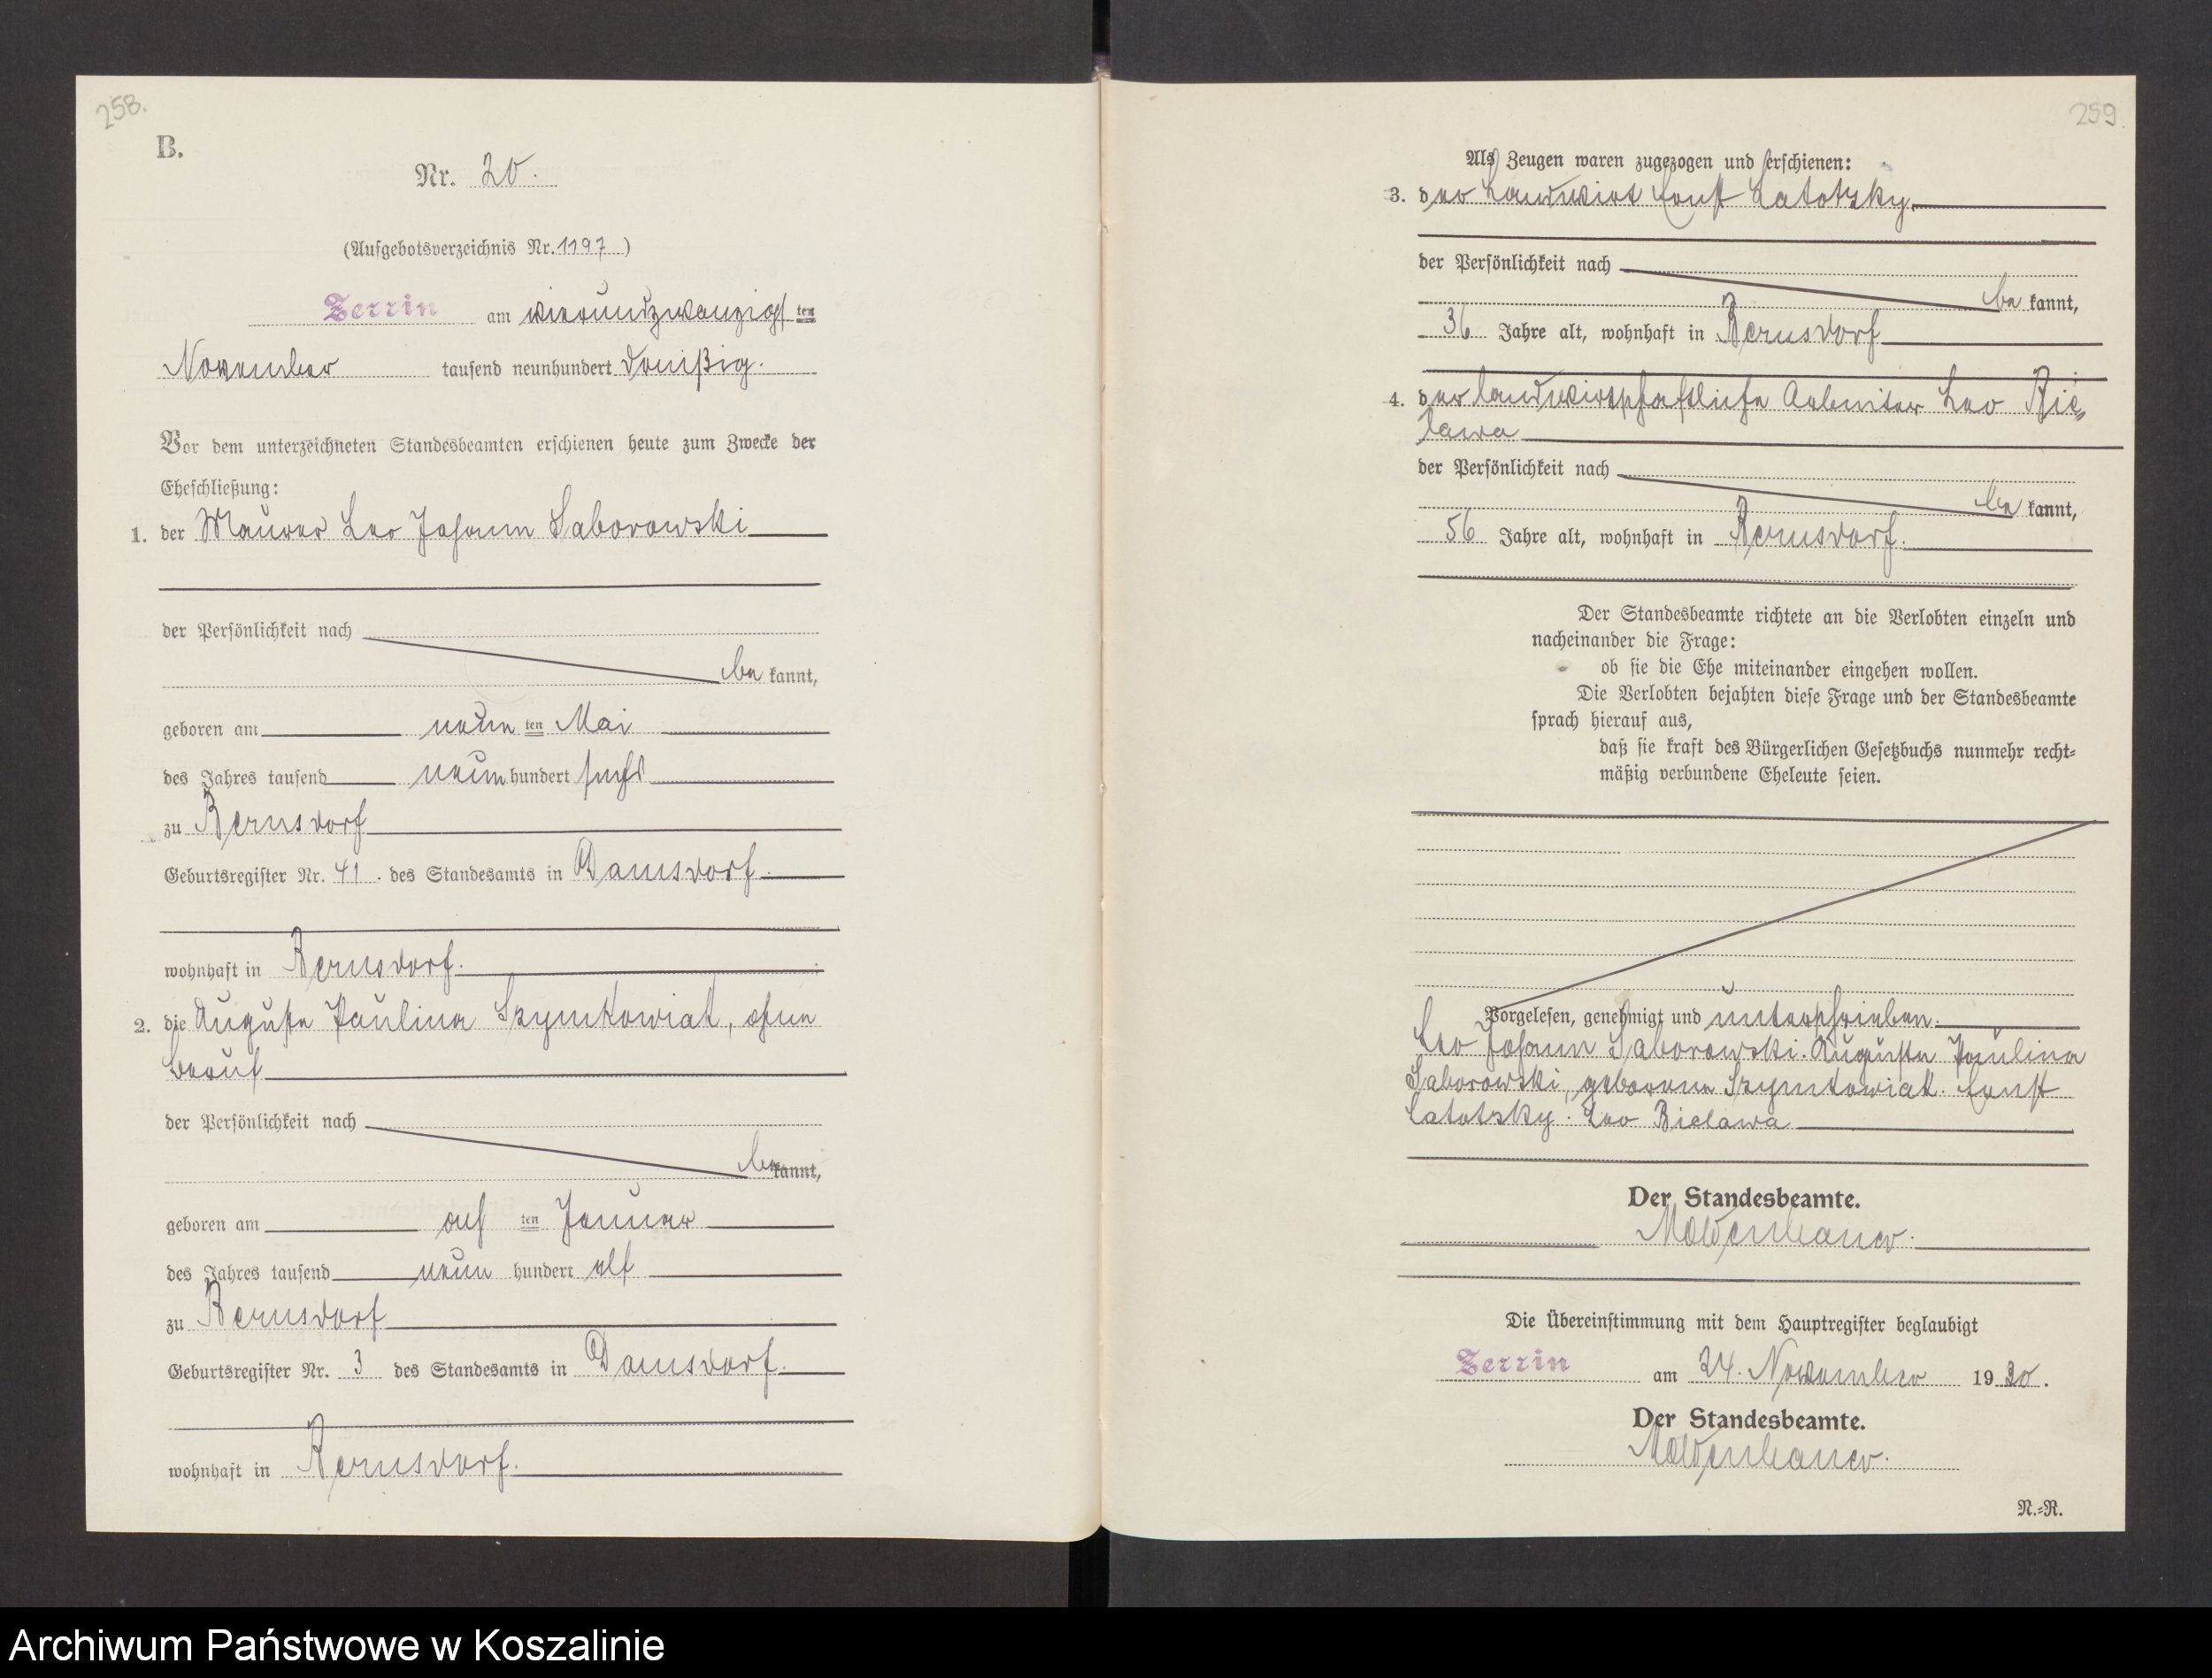 258.
B.
Nr. 20.
(Aufgebotsverzeichnis Nr. 1197)
Zerrin am vierundzwanzigsten
November tausend neunhundert dreißig.
Vor dem unterzeichneten Standesbeamten erschienen heute zum Zwecke der
Eheschließung:
1. der Maurer Leo Johann Saborowski
der Persönlichkeit nach
be kannt,
geboren am neun ten Mai
des Jahres tausend neun hundert sechs
zu Bernsdorf
Geburtsregister Nr. 41. des Standesamts in Damsdorf.
wohnhaft in Bernsdorf.
2. die Auguste Paulina Szymkowiak, ohne
Beruf
der Persönlichkeit nach
be kannt,
geboren am ten Januar
des Jahres tausend neun hundert elf
zu Bernsdorf
Geburtsregister Nr. 3 des Standesamts in Damsdorf.
wohnhaft in Bernsdorf.
259
Als Zeugen waren zugezogen und erschienen:
3. der Landwirt Ernst Latotzky
der Persönlichkeit nach
be kannt,
36 Jahre alt, wohnhaft in Bernsdorf
4. der landwirtschaftliche Arbeiter Leo Bie-
lawa
der Persönlichkeit nach
be kannt,
56 Jahre alt, wohnhaft in Bernsdorf.
Der Standesbeamte richtete an die Verlobten einzeln und
nacheinander die Frage:
ob sie die Ehe miteinander eingehen wollen.
Die Verlobten bejahten diese Frage und der Standesbeamte
sprach hierauf aus,
daß sie kraft des Bürgerlichen Gesetzbuchs nunmehr recht-
mäßig verbundene Eheleute seien.
Vorgelesen, genehmigt und unterschrieben.
Leo Johann Saborowski. Auguste Paulina
Saborowski, geborene Szymkowiak. Ernst
Latotzky. Leo Bielawa
Der Standesbeamte.
Moldenhauer.
Die Übereinstimmung mit dem Hauptregister beglaubigt
Zerrin am 24. November 19 30.
Der Standesbeamte.
Moldenhauer.
N.-R.
Archiwum Państwowe w Koszalinie